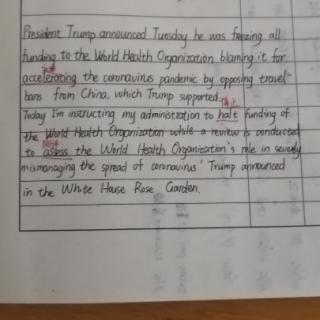 President Trump announced Tuesday he was freezing all
funding to the World Health Organization blaming it for
accelerating the coronavirus pandemic by opposing travel
bans from China, which Trump supported.
Today I'm instructing my administration to halt funding of
the World Health Organization while a review is conducted
to assess the World Health Organization's role in severely
mismanaging the spread of coronavirus' Trump announced
in the White House Rose Garden.